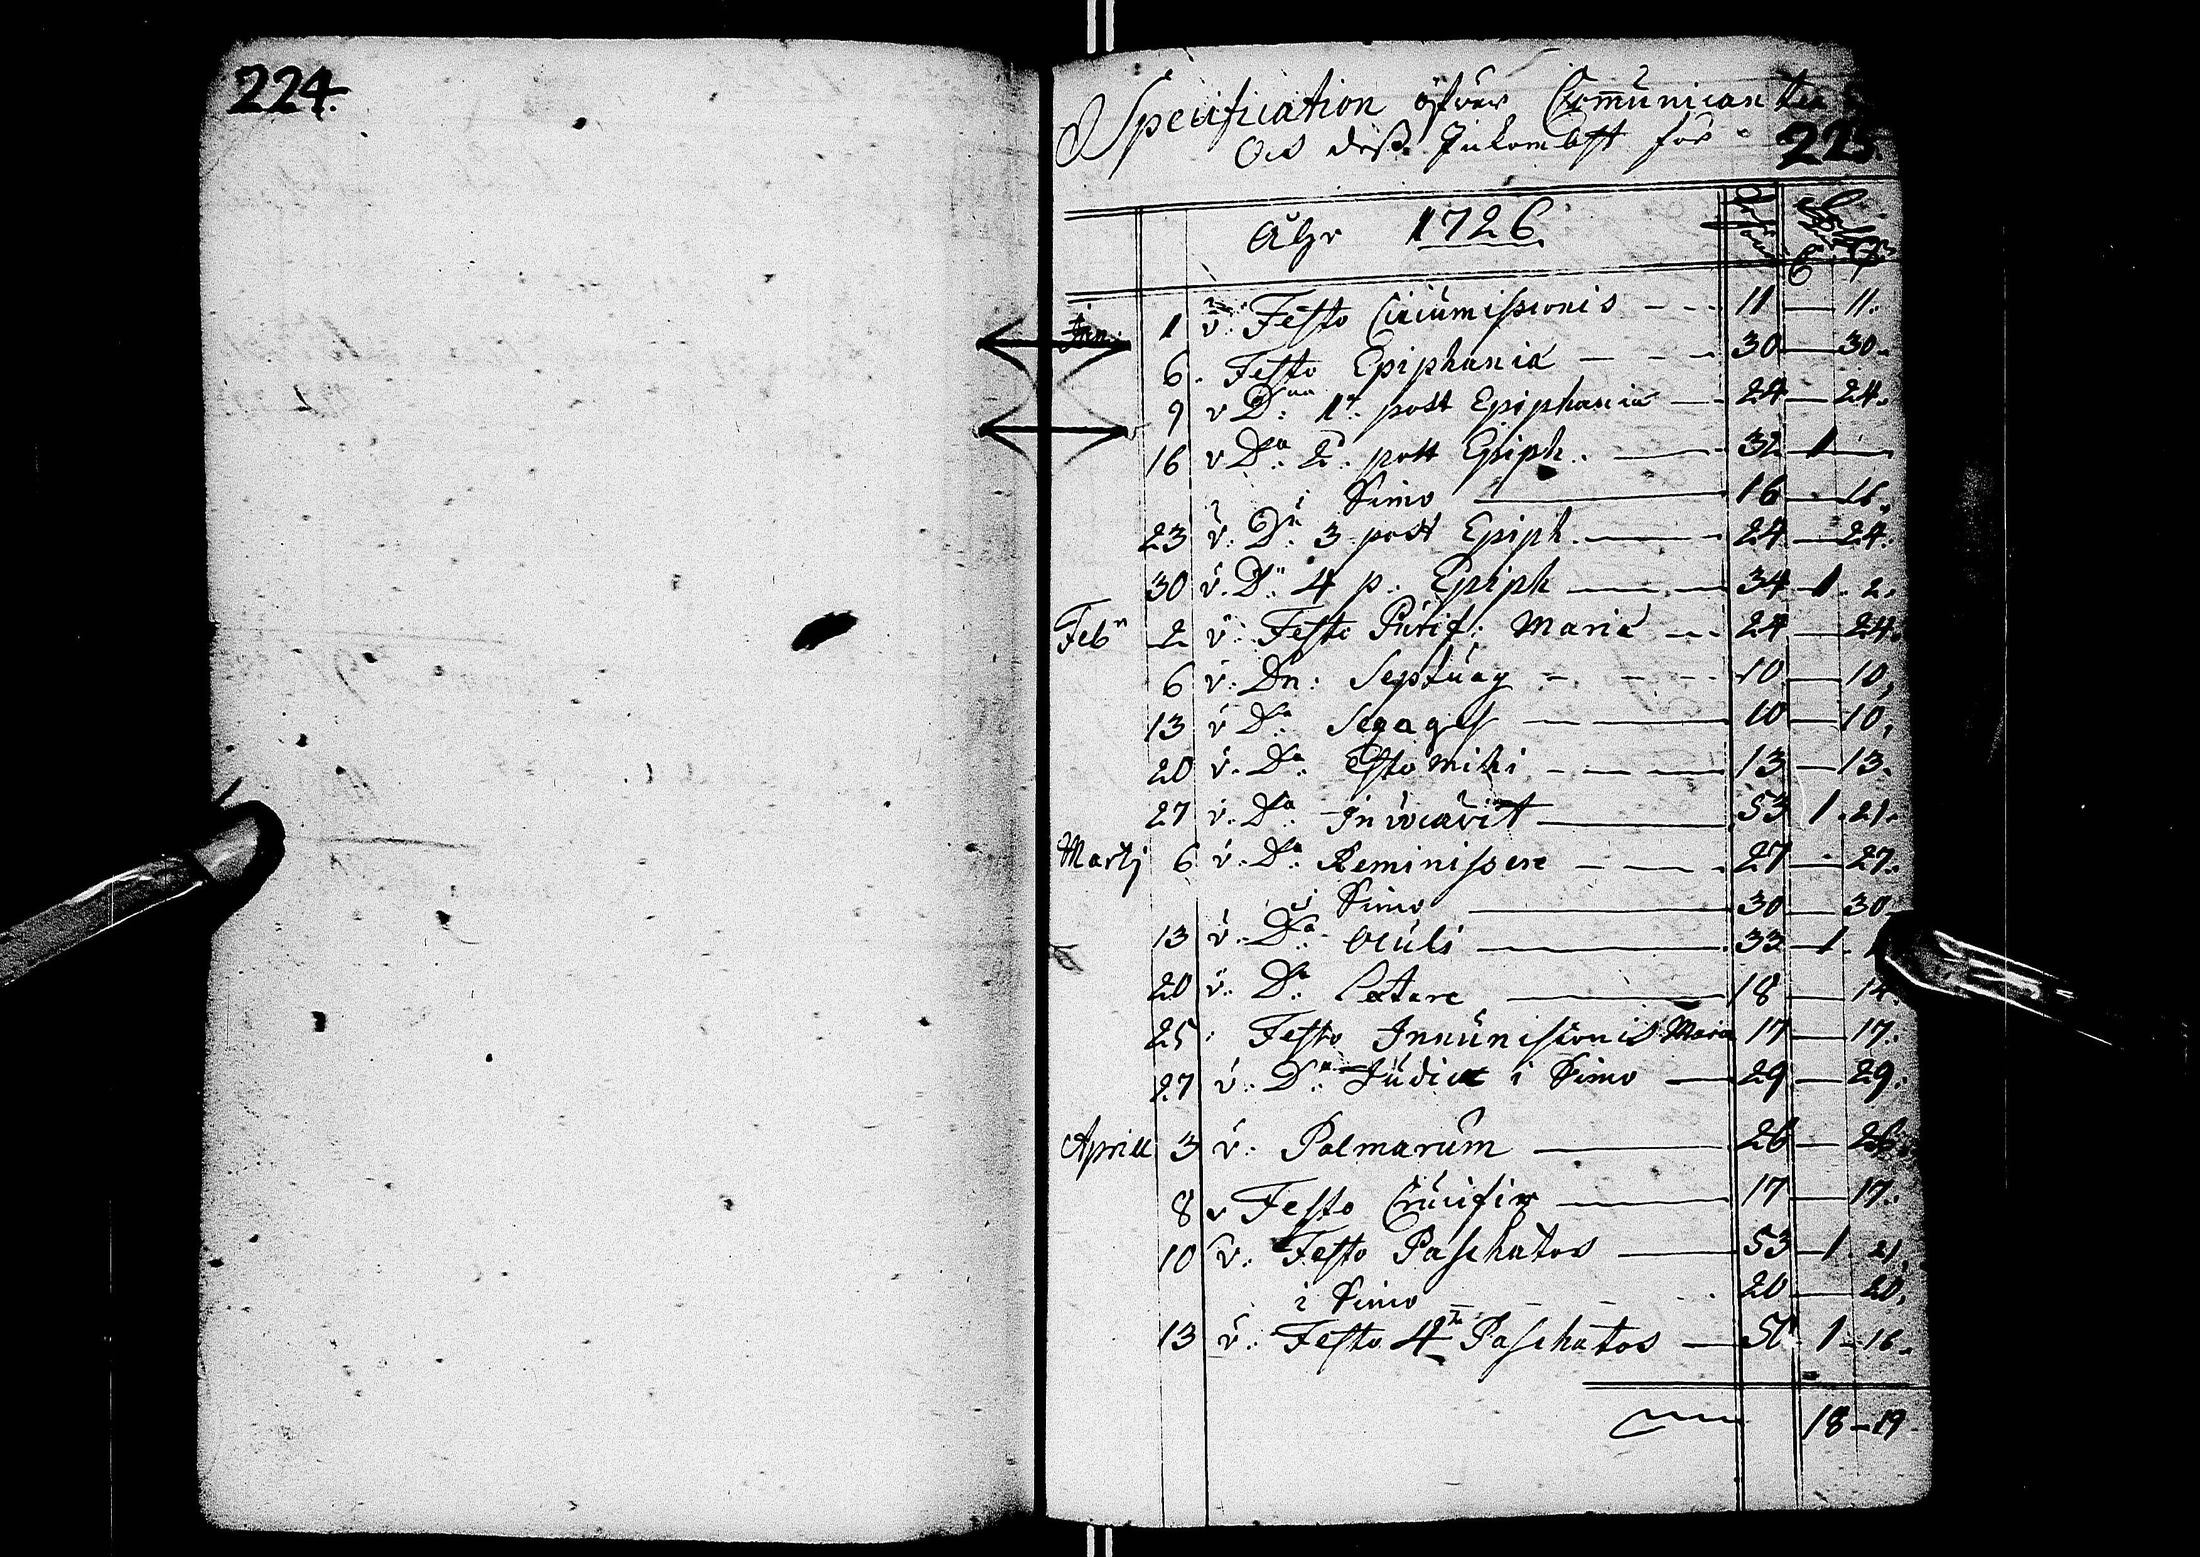 224.
Specification öfver Communican
Och dess Inkombst för
225.
Åhr 1726.
Jan. 1 v. Festo Circumissionis 11 11.
6. Festo Epiphaniæ 30 30.
9 v Dnna 1a post Epiphaniæ 24 24.
16 v Da 2. post Epiph. 32 1
i Simo 16 16.
23 v. Da 3 post Epiph. 24 24.
30 v. Da 4 p. Epiph 34 1. 2.
Febr 2 v. Festo Purif: Mariæ 24 24.
6 v. Dn: Septuag 10 10,
13 v Da Segages 10 10,
20 v. Da Esto mihi 13 13.
27 v. Da Invocavit 53 1. 21.
Martj 6 v. Da Reminissere 27 27.
i Simo 30 30.
13 v. Da Oculi 33 1.
20 v. Da Letare 18
25 Festo Annunissionis Maria 17 17.
27 v. Da Judica i Simo 29 29.
Aprill 3 v. Palmarum 26 26.
8 v Festo Crucifix 17 17.
10 v. Festo Paschatos 53 1. 21,
i Simo 20 20,
13 v. Festo 4 Paschatos 1 16.
18-19